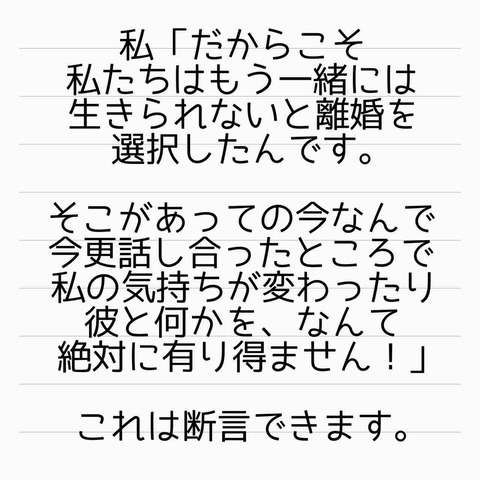 私「だからこそ
私たちはもう一緒には
生きられないと離婚を
選択したんです。
そこがあっての今なんで
今更話し合ったところで
私の気持ちが変わったり
彼と何かを、なんて
絶対に有り得ません！」
これは断言できます。